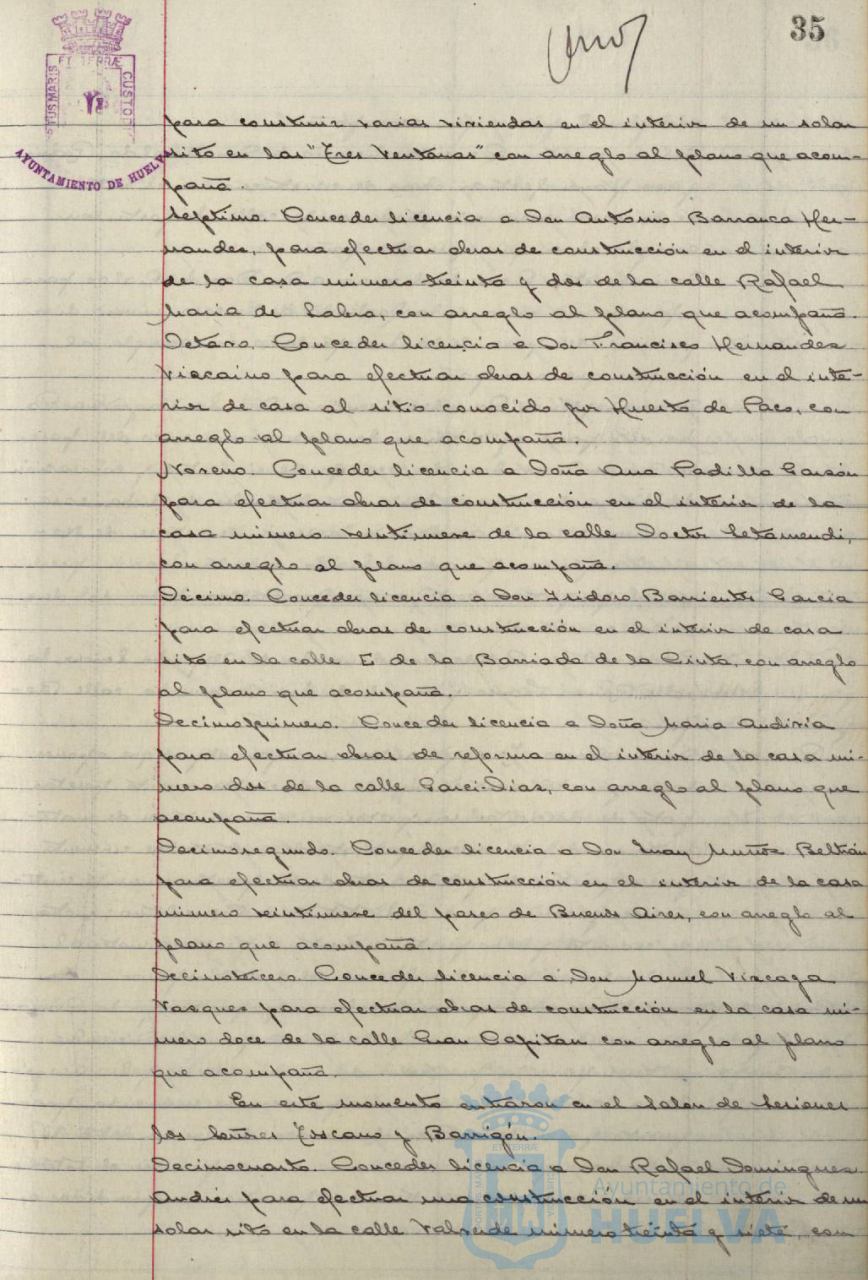 35
PORTUS MARIS ET TERRÆ CUSTODIA
AYUNTAMIENTO DE HUELVA
para construir varias viviendas en el interior de un solar
sito en las "Tres Ventanas" con arreglo al plano que acom-
paña.
Septimo. Conceder licencia a Don Antonio Barranca Her-
nandez, para efectuar obras de construcción en el interior
de la casa número treinta y dos de la calle Rafael
Maria de Labra, con arreglo al plano que acompaña.
Octavo. Conceder licencia a Don Francisco Hernandez
Vizcaino para efectuar obras de construcción en el inte-
rior de casa al sitio conocido por Huerto de Paco, con
arreglo al plano que acompaña.
Noveno. Conceder licencia a Doña Ana Padilla Garzón
para efectuar obras de construcción en el interior de la
casa número veintinueve de la calle Doctor Letamendi,
con arreglo al plano que acompaña.
Décimo. Conceder licencia a Don Isidoro Barrientos Garcia
para efectuar obras de construcción en el interior de casa
sito en la calle E de la Barriada de la Cinta, con arreglo
al plano que acompaña.
Decimoprimero. Conceder licencia a Doña Maria Andivia
para efectuar obras de reforma en el interior de la casa nú-
mero dos de la calle Garci-Diaz, con arreglo al plano que
acompaña.
Decimosegundo. Conceder licencia a Don Juan Muñoz Beltrán
para efectuar obras de construcción en el interior de la casa
número veintinueve del paseo de Buenos Aires, con arreglo al
plano que acompaña.
Decimotercero. Conceder licencia a Don Manuel Vizcaya
Vazquez para efectuar obras de construcción en la casa nú-
mero doce de la calle Gran Capitan con arreglo al plano
que acompaña.
En este momento entraron en el Salon de Sesiones
los señores Toscano y Barrigón.
Decimocuarto. Conceder licencia a Don Rafael Dominguez
Andrés para efectuar una construcción en el interior de un
solar sito en la calle Valverde número treinta y siete, con
Ayuntamiento de
HUELVA